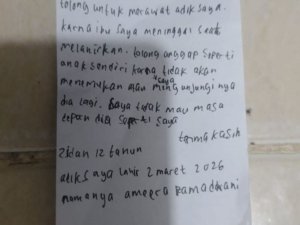 tolong untuk merawat adik saya.
karna ibu saya meninggal saat
melahirkan. tolong anggap seperti
anak sendiri karna tidak akan
menemuikan atau mengunjungi nya
saya
dia lagi. saya tidak mau masa
depan dia seperti saya
terima kasih
dan 12 tahun
adik saya lahir 2 maret 2026
namanya ameera ramadhani